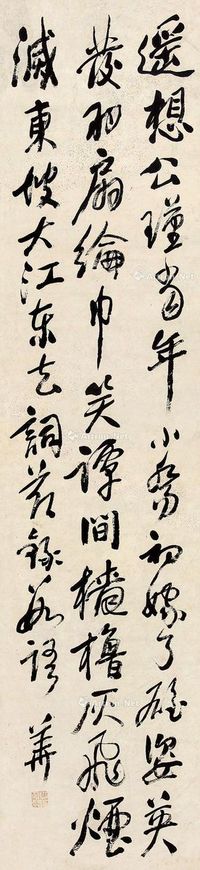 遥想公瑾当年小乔初嫁了雄姿英
发羽扇纶巾笑谭间樯橹灰飞烟
灭东坡大江东去词节录数语 华